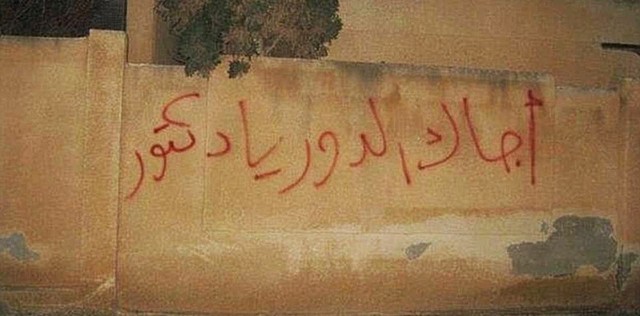 أجاك الدور يا دكتور